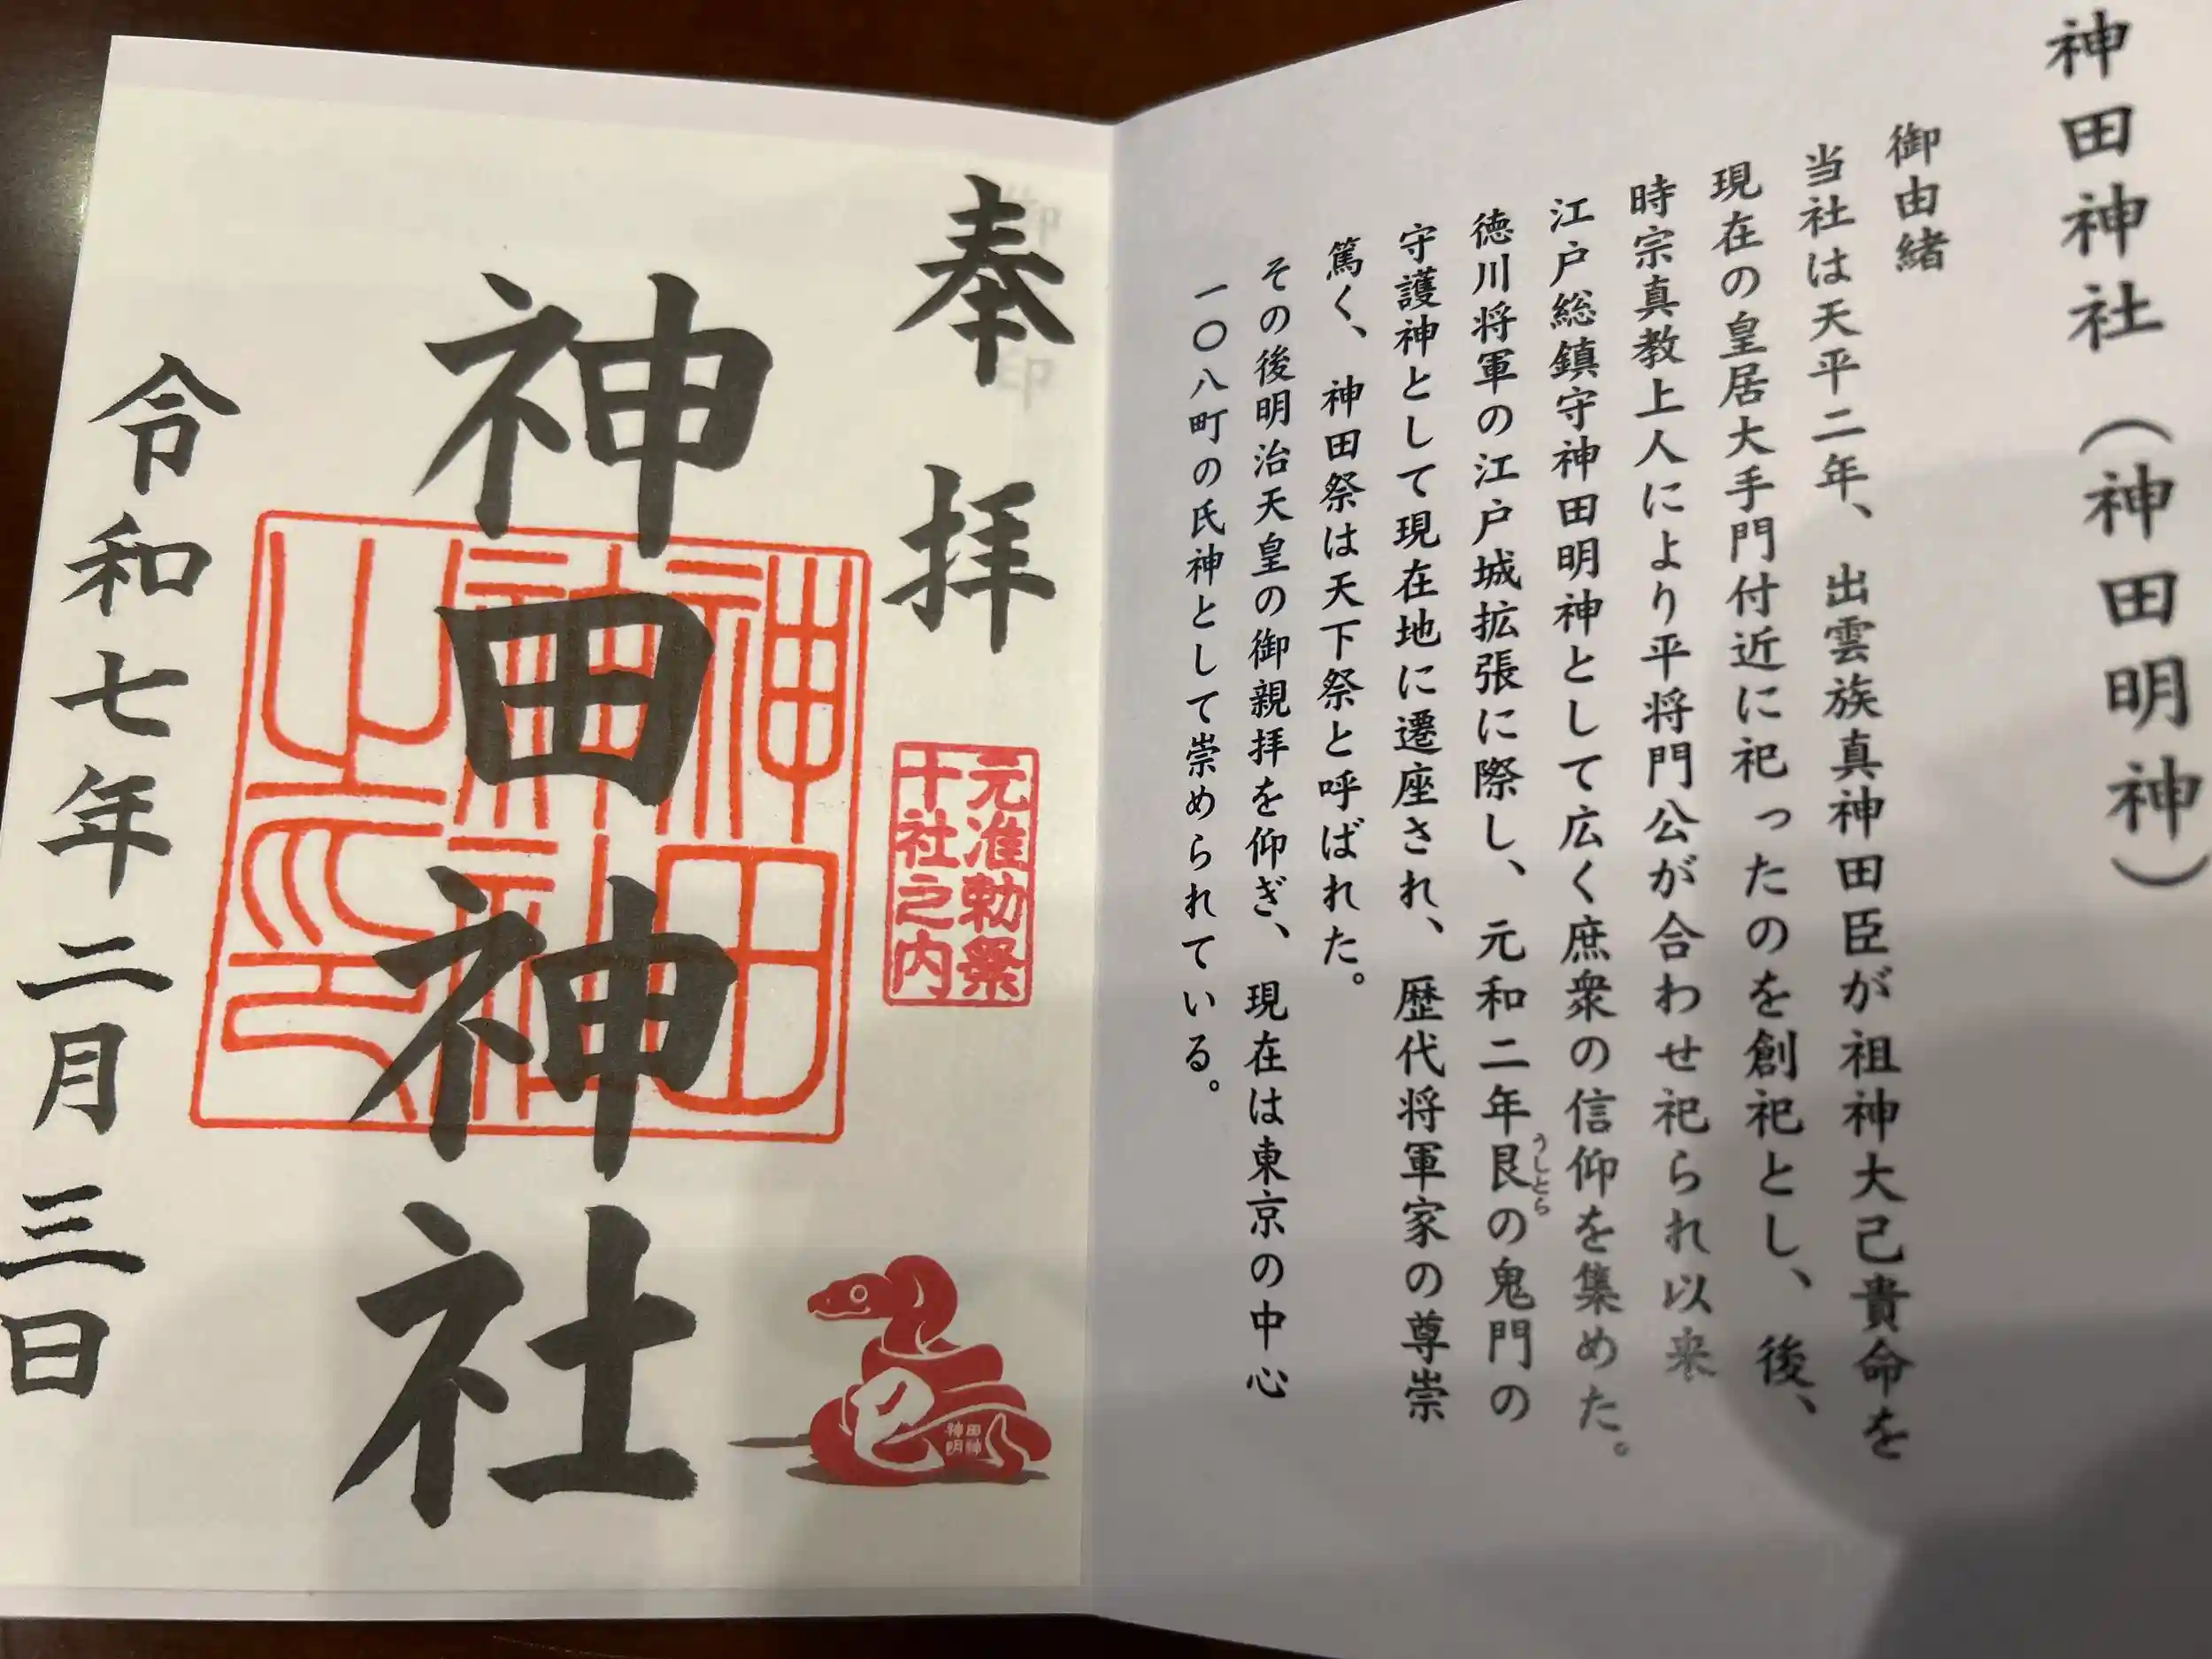 神田神社（神田明神）
御由緒
当社は天平二年、出雲族真神田臣が祖神大己貴命を
現在の皇居大手門付近に祀ったのを創祀とし、後、
時宗真教上人により平将門公が合わせ祀られ以来
江戸総鎮守神田明神として広く庶衆の信仰を集めた。
徳川将軍の江戸城拡張に際し、元和二年艮の鬼門の
うしとら
守護神として現在地に遷座され、歴代将軍家の尊崇
篤く、神田祭は天下祭と呼ばれた。
その後明治天皇の御親拝を仰ぎ、現在は東京の中心
一〇八町の氏神として崇められている。
奉拝
元准勅祭
十社之内
巳
神田
明神
神田神社
神田
神社
之印
令和七年二月三日